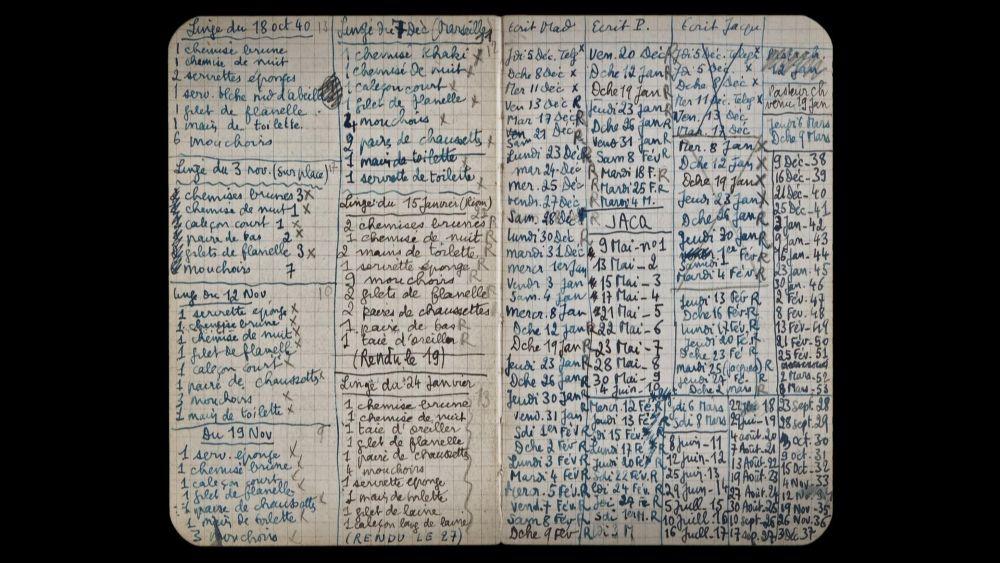 Linge du 18 oct 40 13
1 chemise brune
1 chemise de nuit
2 serviettes éponges
1 serv. blche nid d'abeille
1 gilet de flanelle
1 main de toilette.
6 mouchoirs
Linge du 3 nov. (Sur place)
chemises brunes 3 x
chemise de nuit 1 x
caleçon court 1 x
paire de bas 2 x
gilets de flanelle 3 x
mouchoirs 7
Linge du 12 Nov
1 serviette éponge x
1 chemise brune x
1 chemise de nuit x
1 gilet de flanelle x
1 caleçon court x
1 paire de chaussettes x
3 mouchoirs x
1 main de toilette x
Du 19 Nov 9
1 serv. éponge x
1 chemise brune x
1 caleçon court x
1 gilet de flanelle x
1 paire de chaussettes
1 main de toilette x
3 mouchoirs x
Linge du 7 Dec (Marseille)
1 chemise khaki x
1 chemise de nuit x
1 caleçon court x
1 gilet de flanelle x
mouchoirs x
2 paires de chaussettes x
1 main de toilette x
1 serviette de toilette x
Linge du 15 Janvier (Riom)
2 chemises brunes R
1 chemise de nuit R
2 mains de toilette R
1 serviette éponge R
9 mouchoirs R
2 gilets de flanelle R
2 paires de chaussettes
1 paire de bas R
1 taie d'oreiller R
(Rendu le 19)
Linge du 24 Janvier 13
1 chemise brune
1 chemise de nuit
1 taie d'oreiller
1 gilet de flanelle
1 paire de chaussettes
4 mouchoirs
1 serviette éponge
1 main de toilette
1 gilet de laine
1 caleçon long de laine
(RENDU LE 27)
Ecrit Mad
Jdi 5 Déc. Telegr x
Dche 8 Déc x
Mer 11 Déc x
Ven 13 Déc R
Mar 17 Déc R
Sam 21 Dec R
Lundi 23 Déc R
mar 24 Déc R
mer. 25 Déc
vendr. 27 Déc
Sam. 28 Déc
Lundi 30 Déc
mardi 31 Déc
mercr 1er Jan
Vendr 3 Janv
Sam. 4 Janv
Mercr. 8 Jan
Dche 12 Jan R
Dche 19 Jan R
Jeudi 23 Janv R
Dche 26 Janv R
Jeudi 30 Janv R
Vend. 31 Jan R
Sdi 1er Fév R
Dche 2 Fév R
Lundi 3 Fév R
Mardi 4 Fév R
Mercr. 5 Fév R
Vend. 7 Fév R
Sam 8 Fév R
Dche 9 Fév R
Ecrit P.
Ven. 20 Dec R
Dche 12 Jan R
Dche 19 Jan R
Jeudi 23 Janv R
Dche 26 Janv R
Vendr 31 Jan R
Sam 8 Fév R
Mardi 18 F. R
Mardi 25 F. R
Mardi 4 M.
JACQ
9 Mai - no 1
13 Mai - 2
15 Mai - 3
17 Mai - 4
21 Mai - 5
22 Mai - 6
23 Mai - 7
28 Mai - 8
30 Mai - 9
4 Juin - 10
Mercr. 12 Fé. R
Jeudi 13 Fév R
Sdi 15 Fév. R
Lundi 17 Fév R
Jeudi 20 Fév R
Sdi 22 Fév R
Sdi 1er M. R
Ecrit Jacqu
Jdi 5 Déc. Telegr x
Jdi 5 Déc x
Dche 8 Déc x
Mer 11 Déc. Telegr x
Ven. 13 Déc
Mar. 17 Déc
Mer. 8 Jan x
Dche 12 Jan x
Dche 19 Jan x
Jeudi 23 Jan x
Dche 26 Jan
Jeudi 30 Jan
1er Fév
Mardi 4 Fév R
Jeudi 13 Fév R
Dche 16 Fév R
Lundi 17 Fév. R
Jeudi 20 Fév R
Dche 23 Fé R
mardi 25 (Jacques) R
Jeudi 27 Fé. R
Dche 2 mars R
Jdi 6 Mars
Sdi 8 Mars
8 Juin - 11
12 Juin - 12
23 Juin. 13
24 Juin - 14
5 Juill - 15
10 Juill - 16
16 Juill - 17
29 Jui - 19
4 août - 20
7 Août - 21
13 Août - 22
19 Août - 23
27 Août. 24
30 Août - 25
10 sept - 26
17 sep. 27
12 Jan
Pasteur Ch
venu 19 Jan
Jeudi 6 Mars
Dche 9 Mars
9 Déc - 38
16 Déc - 39
21 Déc - 40
25 Déc - 41
2 Jan - 42
9 Jan. - 43
16 Jan. - 44
23 Jan - 45
30 Jan - 46
2 Fév - 47
8 Fév - 48
13 Fév - 49
21 Fév - 50
25 Fév - 51
2 Mars - 52
8 Mars - 53
23 Sept - 28
28 sept - 29
3 oct - 30
9 oct - 31
15 Oct - 32
4 Nov - 33
19 Nov - 35
26 Nov - 36
3 Dec - 37